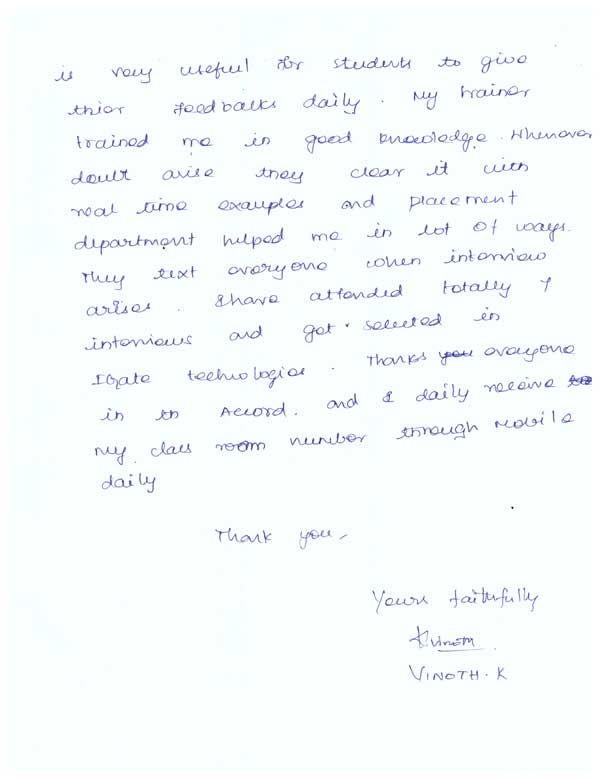 is very useful for students to give
thier feedbacks daily. My trainer
trained me in good knowledge. Whenever
doult arise they clear it with
real time examples and placement
department helped me in lot of ways.
They text everyone when interview
arises. I have attended totally 7
interviews and got selected in
IGate technologies. Thanks you everyone
in th Accord. and I daily receive
my class room number through Mobile
daily
Thank you,
Yours faithfully
K Vinoth
VINOTH. K